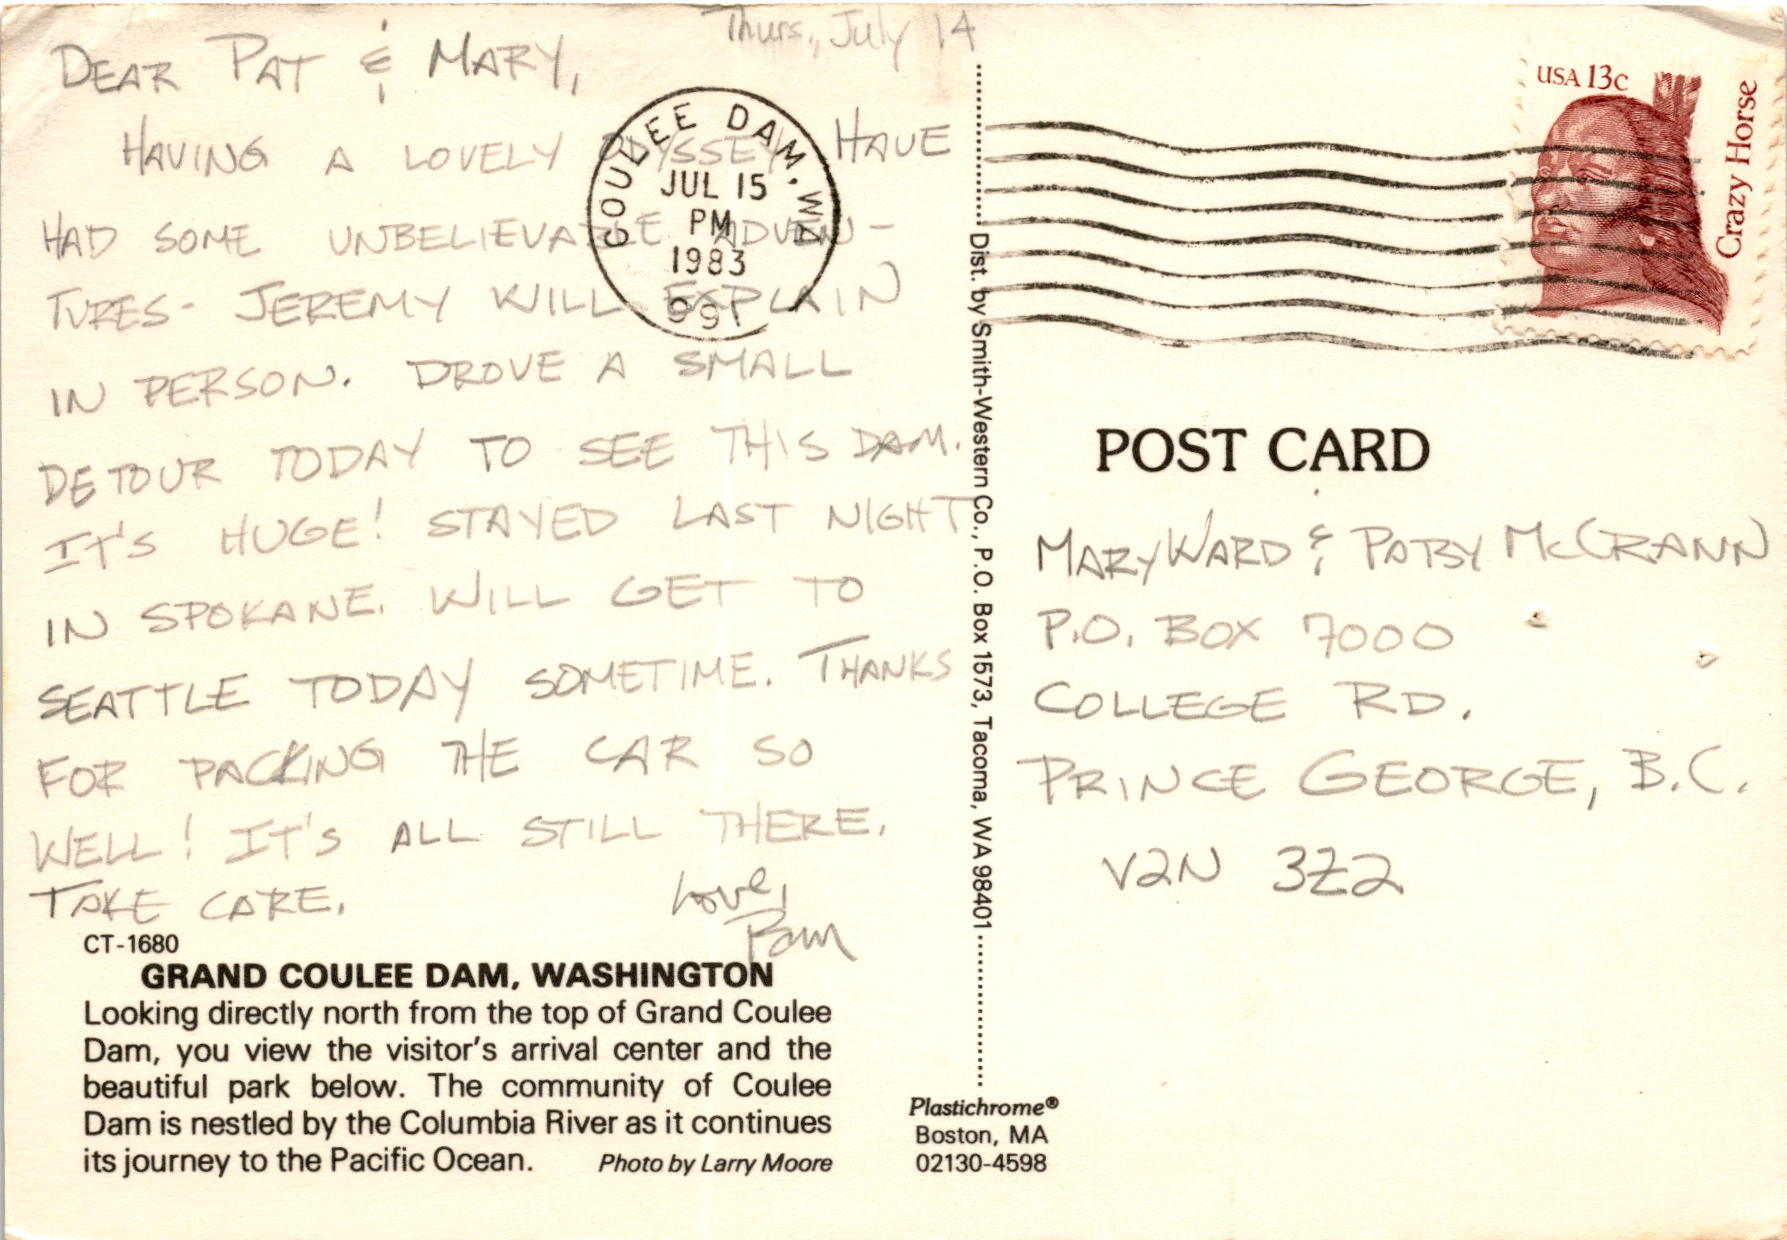 Thurs., July 14
DEAR PAT & MARY,
HAVING A LOVELY ODYSSEY. HAVE
HAD SOME UNBELIEVABLE ADVEN-
TURES- JEREMY WILL EXPLAIN
IN PERSON. DROVE A SMALL
DETOUR TODAY TO SEE THIS DAM.
IT'S HUGE! STAYED LAST NIGHT
IN SPOKANE. WILL GET TO
SEATTLE TODAY SOMETIME. THANKS
FOR PACKING THE CAR SO
WELL! IT'S ALL STILL THERE.
TAKE CARE.
Love,
Pam
CT-1680
GRAND COULEE DAM, WASHINGTON
Looking directly north from the top of Grand Coulee
Dam, you view the visitor's arrival center and the
beautiful park below. The community of Coulee
Dam is nestled by the Columbia River as it continues
its journey to the Pacific Ocean. Photo by Larry Moore
COULEE DAM, WA
JUL 15
PM
1983
991
Dist. by Smith-Western Co., P.O. Box 1573, Tacoma, WA 98401
Plastichrome®
Boston, MA
02130-4598
USA 13c
Crazy Horse
POST CARD
MARY WARD & PATSY McCRANN
P.O. BOX 7000
COLLEGE RD.
PRINCE GEORGE, B.C.
V2N 3Z2